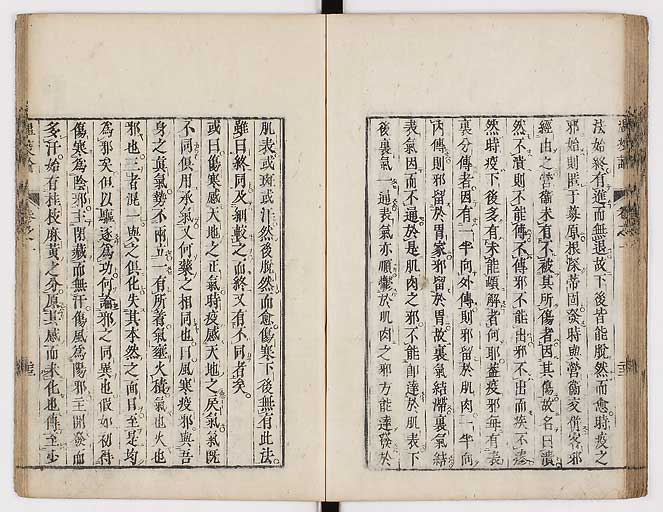 法始終有進而無退故下後皆能脫然而愈時疫之
邪始則匿于募原根深蒂固發時與營衛交併客邪
經由之營衛未有不被其所傷者因其傷故名曰潰
然不潰則不能傳不傳邪不能出邪不出而疾不瘳
然時疫下後多有未能頓解者何耶蓋疫邪每有表
裏分傳者因有一半向外傳則邪留於肌肉一半向
內傳則邪留於胃家邪留於胃故裏氣結滯裏氣結
表氣因而不通於是肌肉之邪不能即達於肌表下
後裏氣一通表氣亦順鬱於肌肉之邪方能達發於
肌表或斑或汗然後脫然而愈傷寒下後無有此法
雖曰終同及細較之而終又有不同者矣
或曰傷寒感天地之正氣時疫感天地之戾氣氣既
不同俱用承氣又何藥之相同也曰風寒疫邪與吾
身之真氣勢不兩立一有所着氣壅火積氣也火也
邪也三者混一與之俱化失其本然之面目至是均
為邪矣但以驅逐為功何論邪之同異也假如初得
傷寒為陰邪主閉藏而無汗傷風為陽邪主開發而
多汗始有桂枝麻黃之分原其感而未化也傳至少